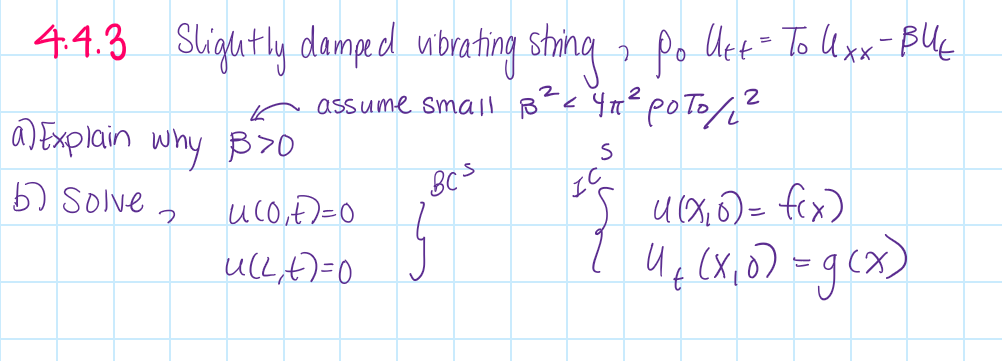 4.4.3 Slightly damped vibrating string, ρ₀ Utt = T₀ Uxx - βUt
assume small β² < 4π² ρ₀T₀/L²
a) Explain why β>0
b) Solve, u(0,t)=0 } BCs ICs { u(x,0) = f(x)
u(L,t)=0 Ut (x,0) = g(x)